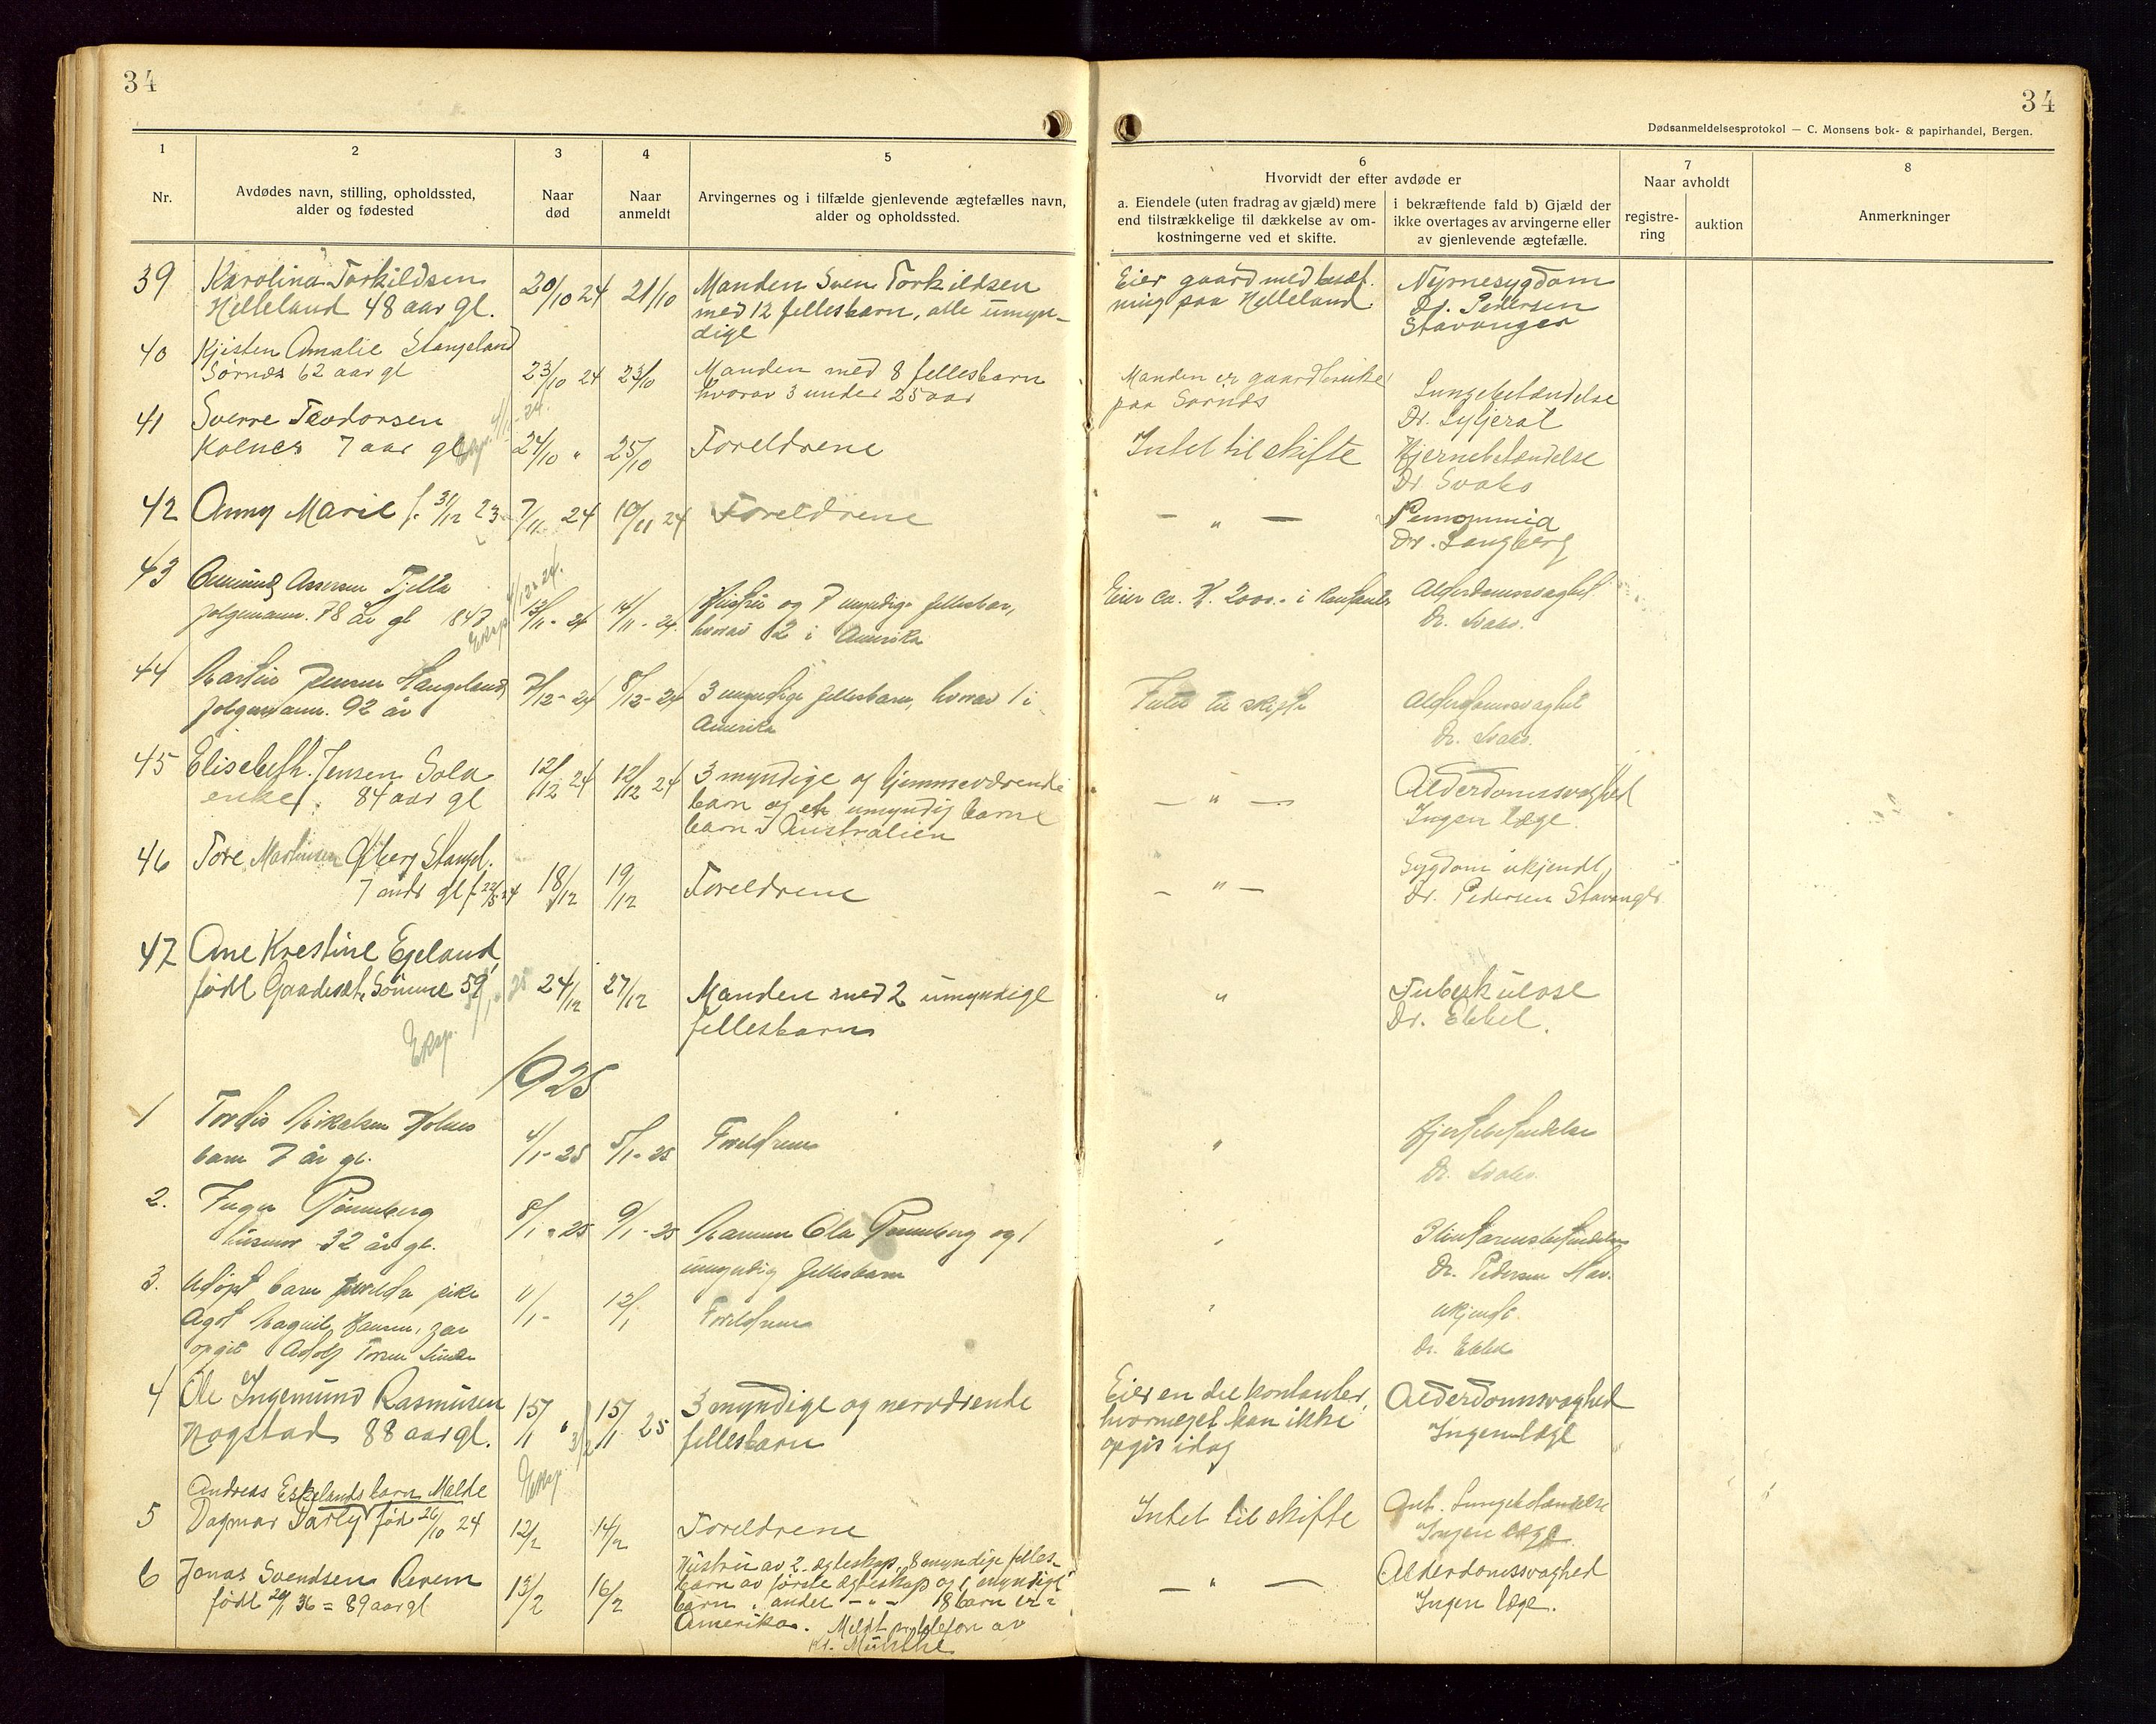 34
34
Dødsanmeldelsesprotokol — C. Monsens bok- & papirhandel, Bergen.
1 2 3 4 5 6 7 8
Nr.
Avdødes navn, stilling, opholdssted,
alder og fødested
Naar
død
Naar
anmeldt
Arvingernes og i tilfælde gjenlevende ægtefælles navn,
alder og opholdssted.
Hvorvidt der efter avdøde er
a. Eiendele (uten fradrag av gjæld) mere
end tilstrækkelige til dækkelse av om-
kostningerne ved et skifte.
i bekræftende fald b) Gjæld der
ikke overtages av arvingerne eller
av gjenlevende ægtefælle.
Naar avholdt
registre-
ring
auktion
Anmerkninger
39 Karolina Torkildsen 20/10 24 21/10 Manden Sven Torkildsen Eier gaard med besæt- Nyrnesygdom
Helleland 48 aar gl. med 12 fellesbarn, alle umyn- ning paa Helleland. Dr. Pedersen
dige Stavanger
40 Kjisten Amalie Stangeland
Sørnes 62 aar gl 23/10 24 23/10 Manden med 8 fellesbarn Manden er gaardbruker Lungebetændelse
hvorav 3 under 25 aar paa Sørnes Dr.
41 Sverre Teodorsen
Kolnes 7 aar gl 24/10 " 25/10 Foreldrene Intet til skifte Hjernebetændelse
Dr. Svabo
42 Anny Marie f. 31/12 23 7/11 24 10/11 24 Foreldrene — " — Pemommia
Dr. Langberg
43 Assersen Tjelta
78 år gl 1847 13/11 - 24 14/11 - 24 Hustru og 7 myndige fellesbar, Eier ca. K. 2000.- i kontanter Alderdomsvaghet
hvorav 2 i Amerika Dr. Svabo.
Eksp
44 Hangeland 7/12 - 24 8/12 - 24 3 myndige fellesbarn, hvorav 1 i Intet til skifte Alderdomsvaghet
92 år Amerika Dr. Svabo.
45 Elisabeth Jensen Sola 12/12 24 12/12 24 3 myndige og hjemmeværende — " — Alderdomssvaghed
enke, 84 aar gl barn og et umyndig barne Ingen læge.
barn i Australien
46 Tore Martinsen Øberg Stangel.
7 mdr gl f. 22/5 24 18/12 19/12 Foreldrene — " — Sygdom ukjendt
Dr. Pedersen Stavanger
47 Ane Krestine Egeland
født Gaadeset, Sömme 59 24/12 27/12 Manden med 2 umyndige " Tuberkulose
fellesbarn Dr. Ebbel.
Eksp.
1925
1 Tordis Mikalsen Kolnes
barn 7 år gl. 4/1 - 25 5/1 - 25 Foreldrene " Hjertebetendelse
Dr. Svabo.
2. Inger Rønneberg
husmor 32 år gl. 8/1 - 25 9/1 - 25 Mannen Ola Rønneberg og 1 Dr. Pedersen Stav.
umyndig fellesbarn
3. Udøpt barn foreldre pike 11/1 - 12/1 Foreldrene ukjendt
Dr. Ebbel
opgit Adolf
4 Ole Ingemund Rasmusen 15/1 " 15/1 25 3 myndige og nerværende Eier en del kontanter, Alderdomsvaghed
Hogstad 88 aar gl. fellesbarn hvormeget kan ikke Ingen læge
opgis idag
Eksp
Andreas Eskelands barn Melde
5 Dagmar Tarly født 26/10 24 12/2 14/2 Foreldrene Intet til skifte Ant. Lungebetændelse
Ingen læge
6 Jonas Svendsen Revem 13/2 16/2 Hustru av 2. ægteskap, 8 myndige felles- — " — Alderdomssvaghed
født 24/1 36 = 89 aar gl barn av første ægteskap og 1 myndigt Ingen læge.
barn " andet — " — 8 barn er i
Amerika. Meldt pr telefon av
Kr. Munthe